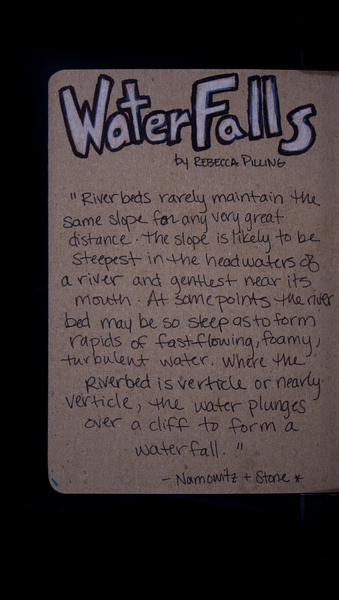 WaterFalls
by REBECCA PILLING
"Riverbeds rarely maintain the
same slope for any very great
distance. The slope is likely to be
steepest in the headwaters of
a river and gentlest near its
mouth. At some points the river
bed may be so steep as to form
rapids of fast-flowing, foamy,
turbulent water. Where the
Riverbed is verticle or nearly
verticle, the water plunges
over a cliff to form a
waterfall."
- Namowitz + Stone *